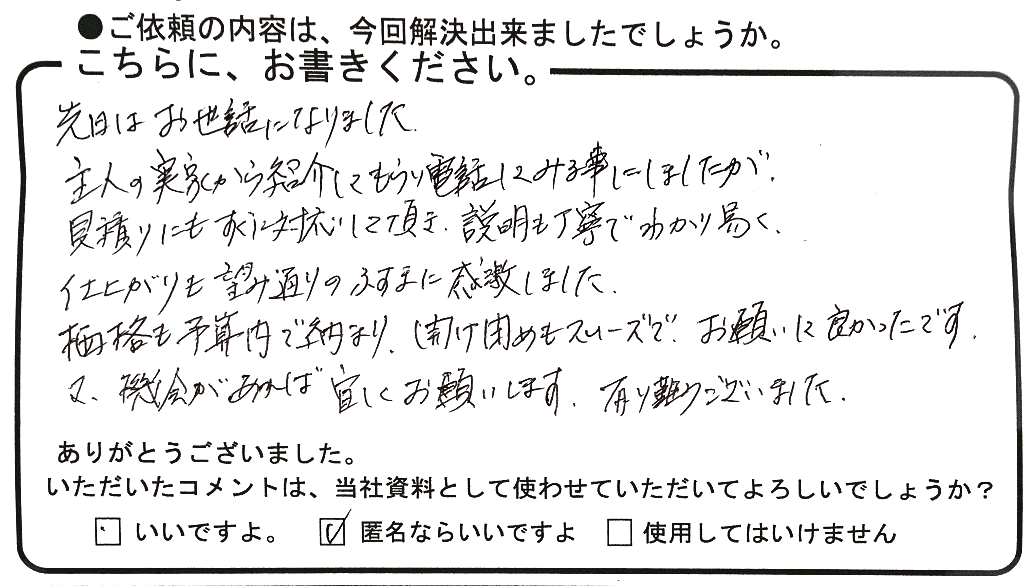 ●ご依頼の内容は、今回解決出来ましたでしょうか。
こちらに、お書きください。
先日はお世話になりました.
主人の実家から紹介してもらい電話してみる事にしましたが、
見積りにもすぐに対応して頂き、説明も丁寧でわかり易く、
仕上がりも望み通りのふすまに感激しました.
価格も予算内で納まり、開け閉めもスムーズで、お願いして良かったです.
又、機会があれば宜しくお願いします. 有り難うございました.
ありがとうございました。
いただいたコメントは、当社資料として使わせていただいてよろしいでしょうか？
いいですよ。 匿名ならいいですよ 使用してはいけません